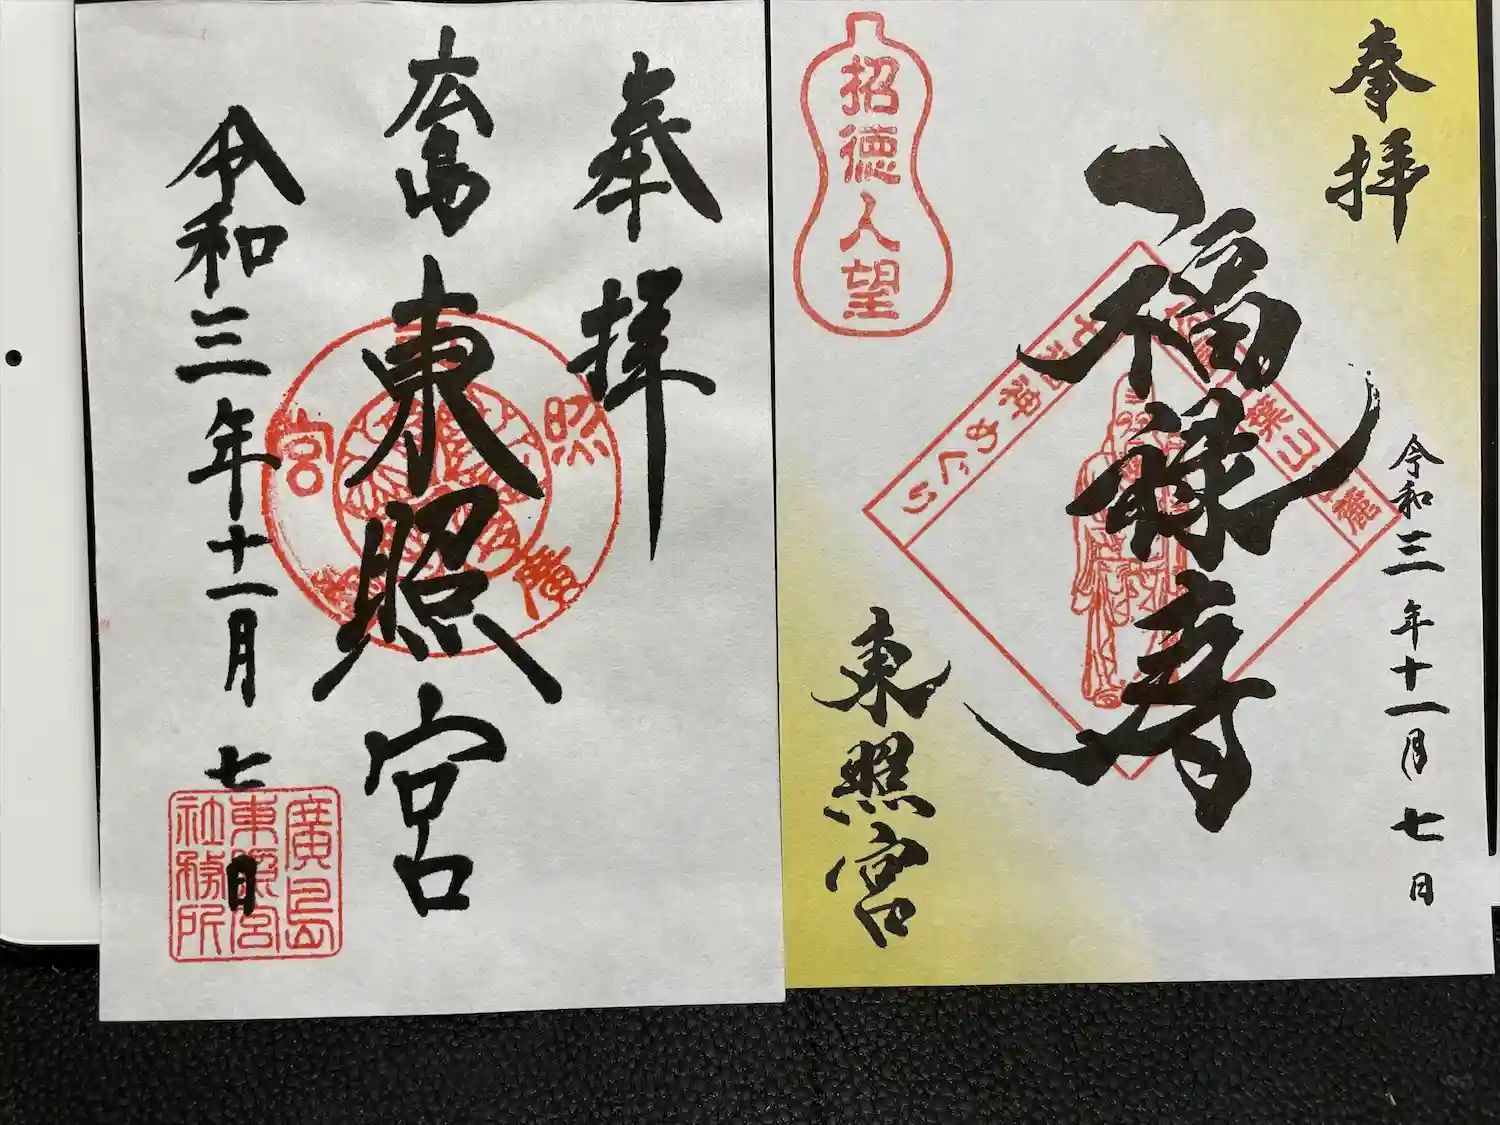 奉拝
広島
東照宮
令和三年十一月七日
照
宮
廣
廣島
東照宮
社務所
奉拝
福禄寿
令和三年十一月七日
東照宮
招徳人望
七福神めぐり